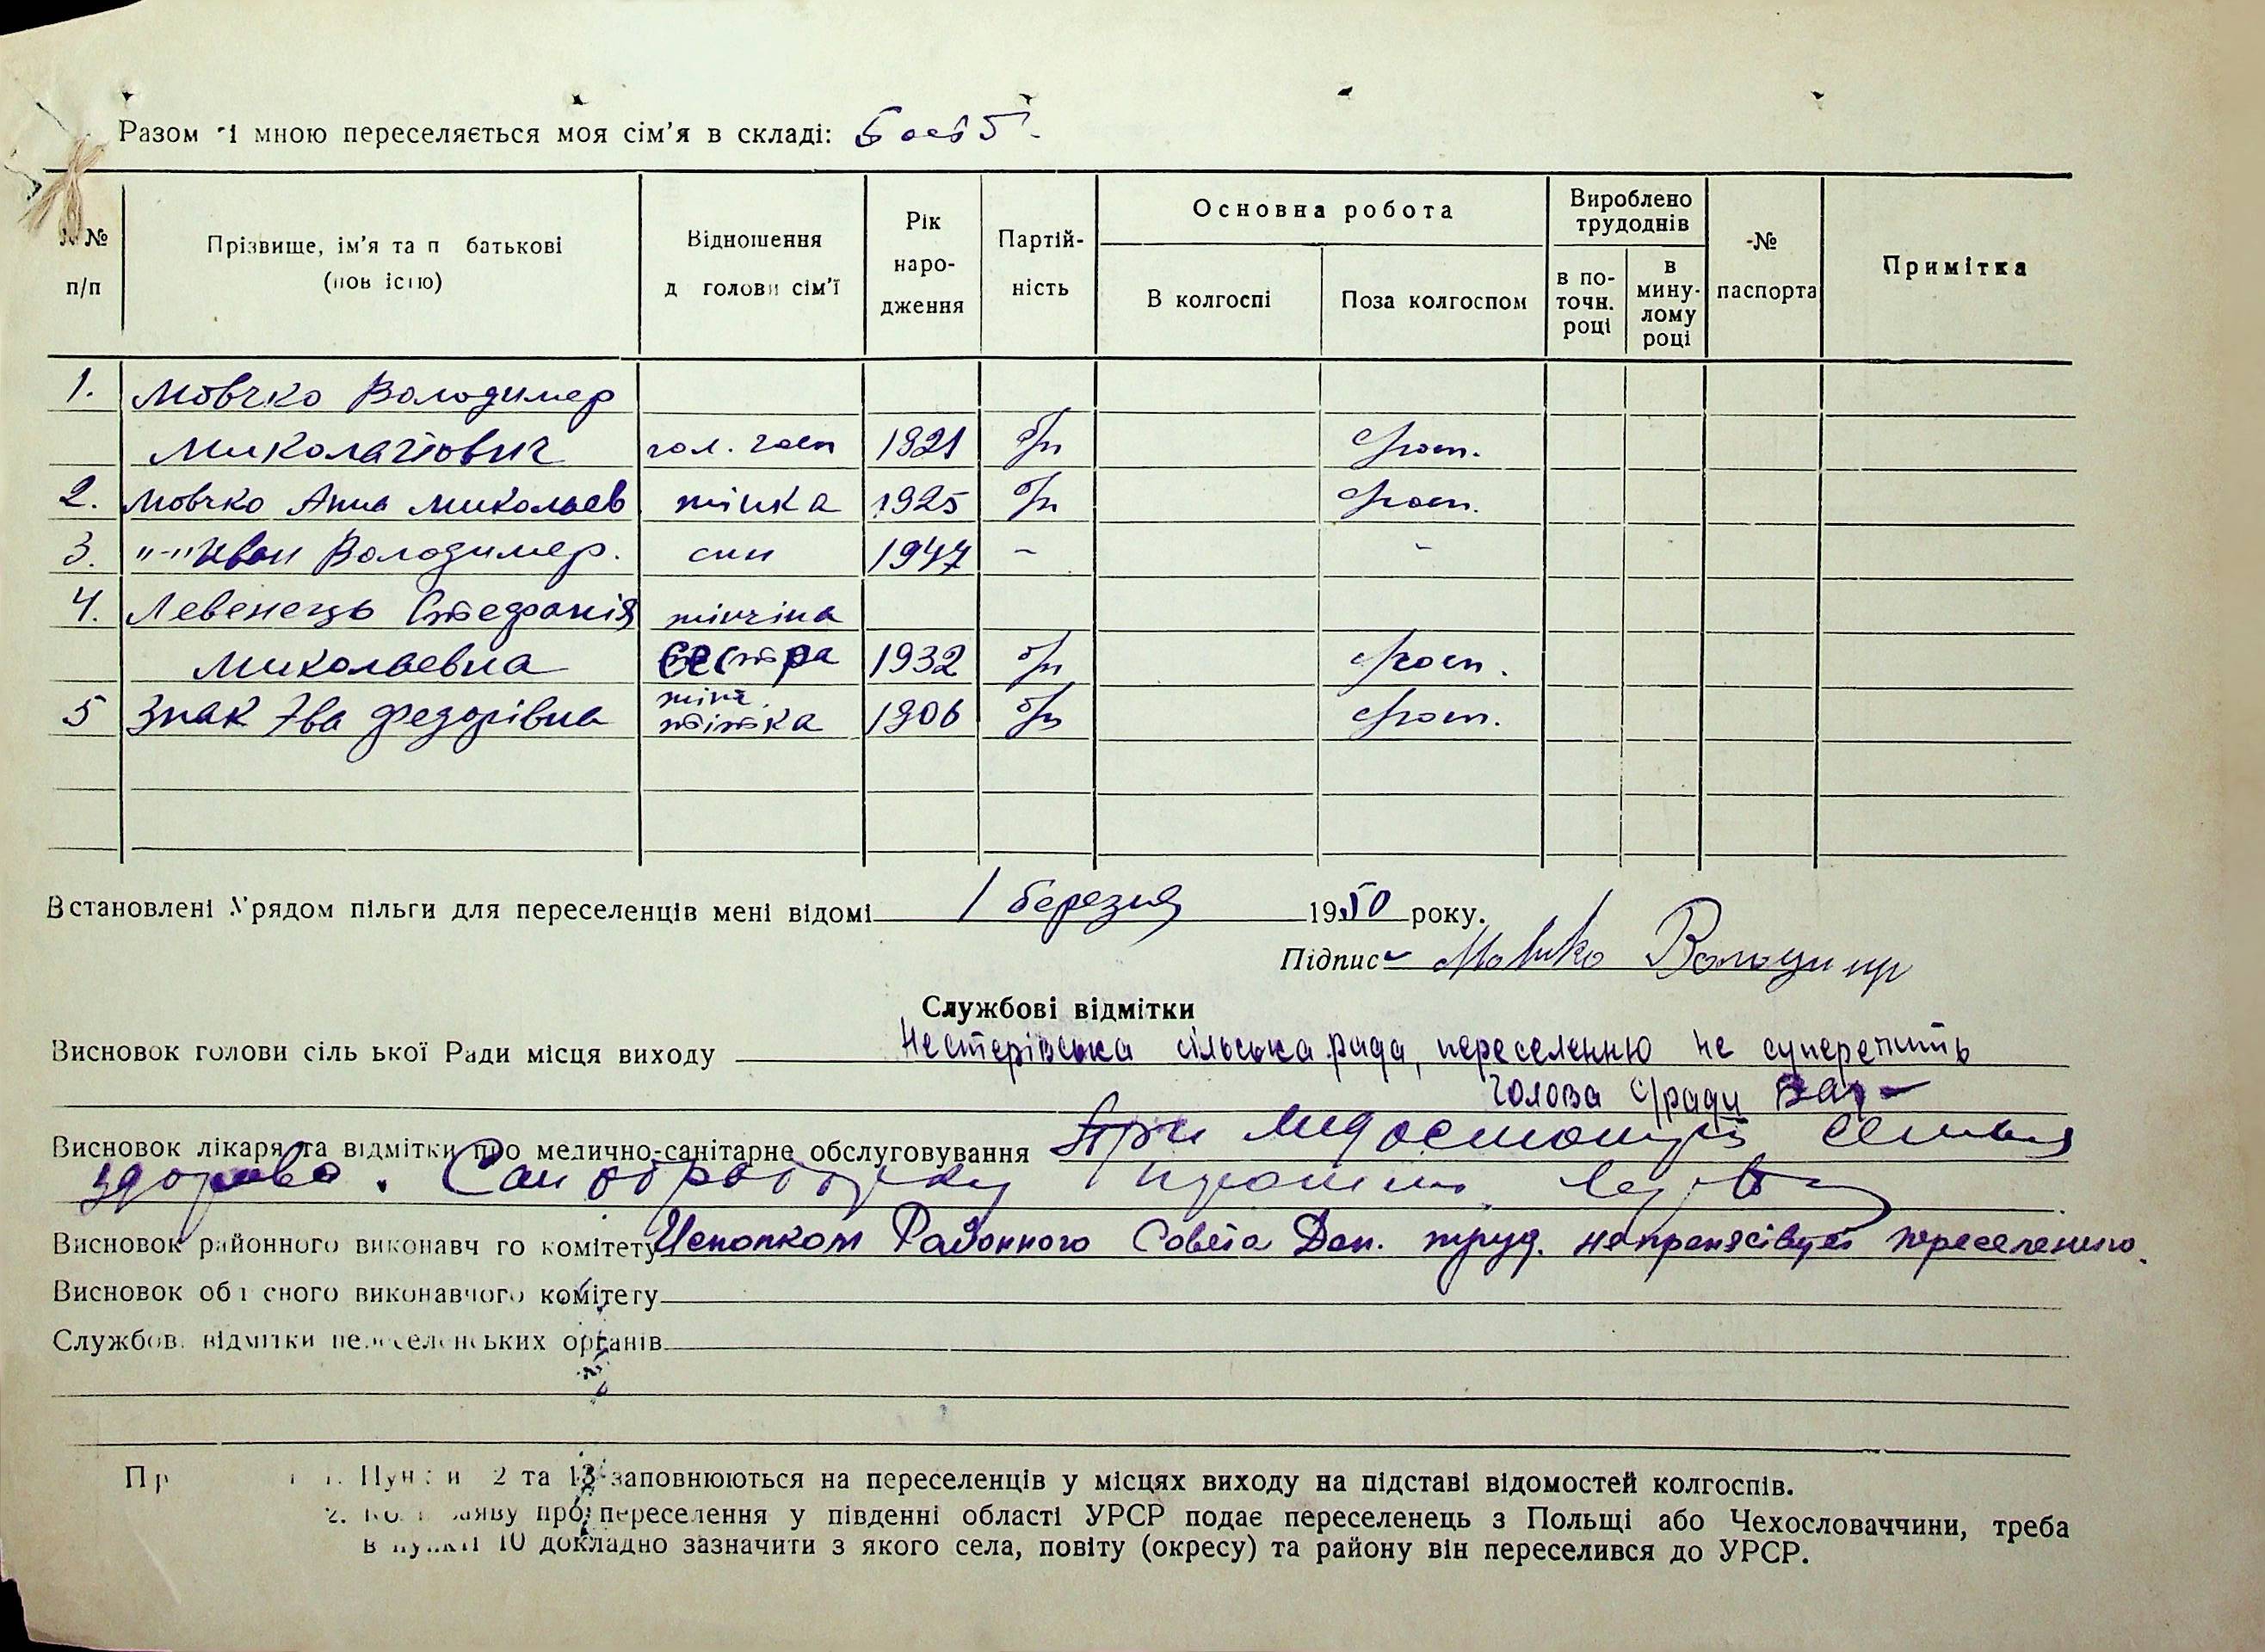 Разом зі мною переселяється моя сім'я в складі: 5 осіб
№№ п/п
Прізвище, ім'я та п батькові (повністю)
Відношення д голови сім'ї
Рік народження
Партійність
Основна робота
В колгоспі
Поза колгоспом
Вироблено трудоднів
в поточн. році
в минулому році
№ паспорта
Примітка
1. Мовчко Володимер
Миколайович гол. госп 1921 б/п с/госп.
2. Мовчко Анна Миколаєв жінка 1925 б/п с/госп.
3. "-" Иван Володимер. син 1947 – -
4. Левенець Стефанія жінчина
Миколаевна сестра 1932 б/п с/госп.
5 Знак Эва Федорівна жінч. тітка 1906 б/п с/госп.
Встановлені Урядом пільги для переселенців мені відомі 1 березня 1950 року.
Підпис Мовчко Володимир
Службові відмітки
Висновок голови сільської Ради місця виходу Нестерівська сільська рада, переселенню не суперечить
Голова с/ради
Висновок лікаря та відмітки про медично-санітарне обслуговування При медосмотре семья
здорова. Сан обработку
Висновок районного виконавчого комітету Исполком Районного Совета Деп. труд. непрепяствует переселению.
Висновок обласного виконавчого комітету
Службові відмітки переселенських органів
Пр 1. Пункти 2 та 13 заповнюються на переселенців у місцях виходу на підставі відомостей колгоспів.
2. Коли заяву про переселення у південні області УРСР подає переселенець з Польщі або Чехословаччини, треба
в пункті 10 докладно зазначити з якого села, повіту (окресу) та району він переселився до УРСР.